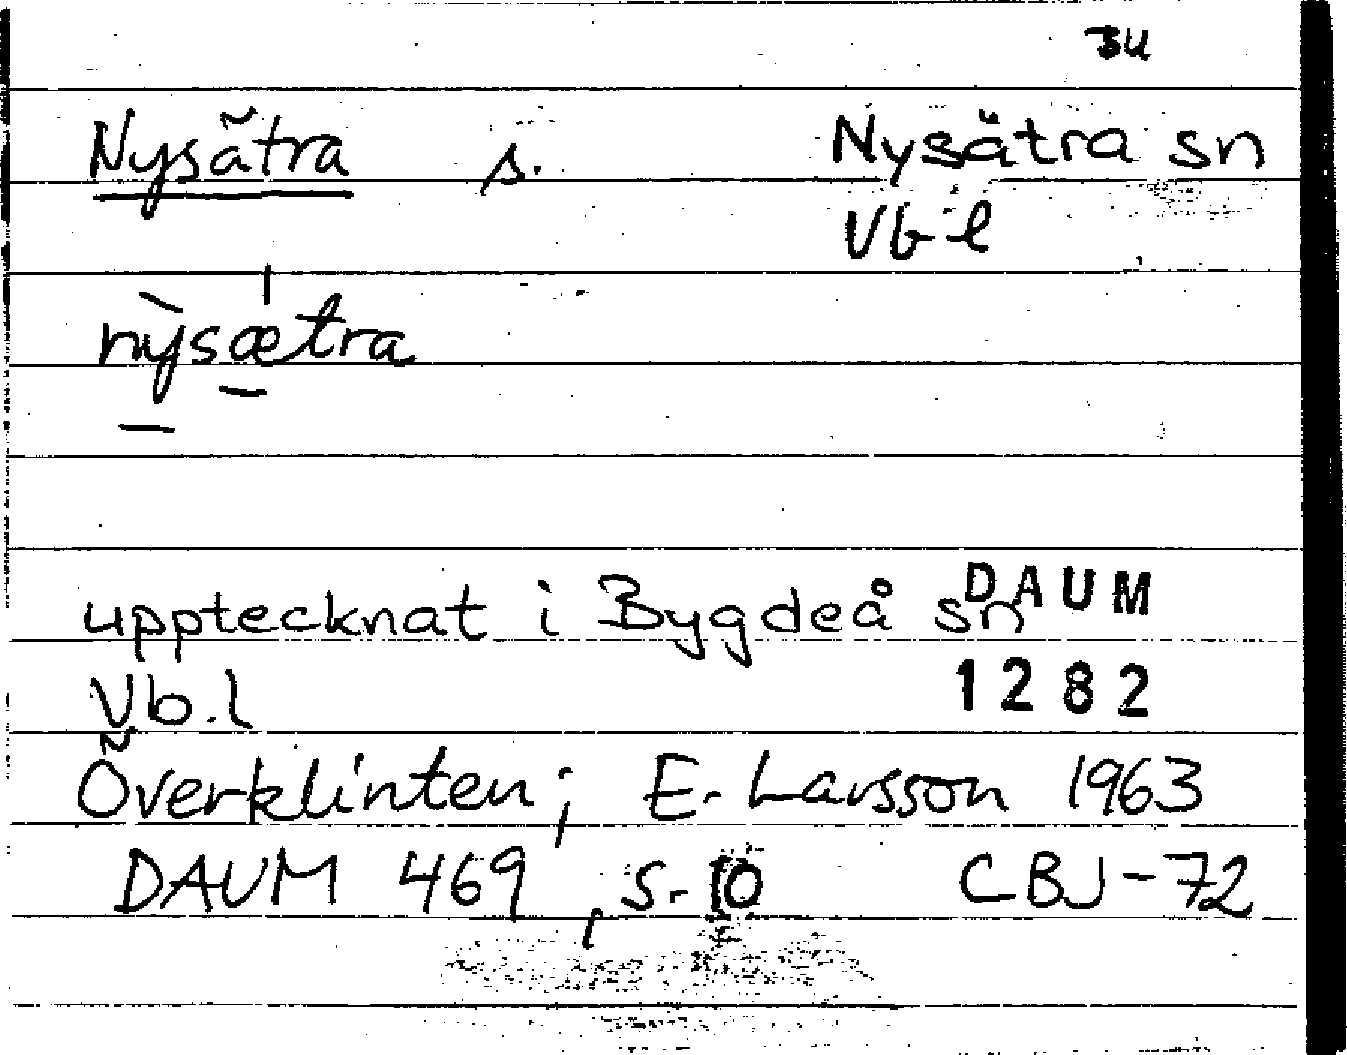 Nysätra s. Nysätra sn
Vb l
nỳsætra
upptecknat i Bygdeå sn DAUM
Vb.l 1282
Överklinten; E. Larsson 1963
DAUM 469, s. 10 CBJ-72